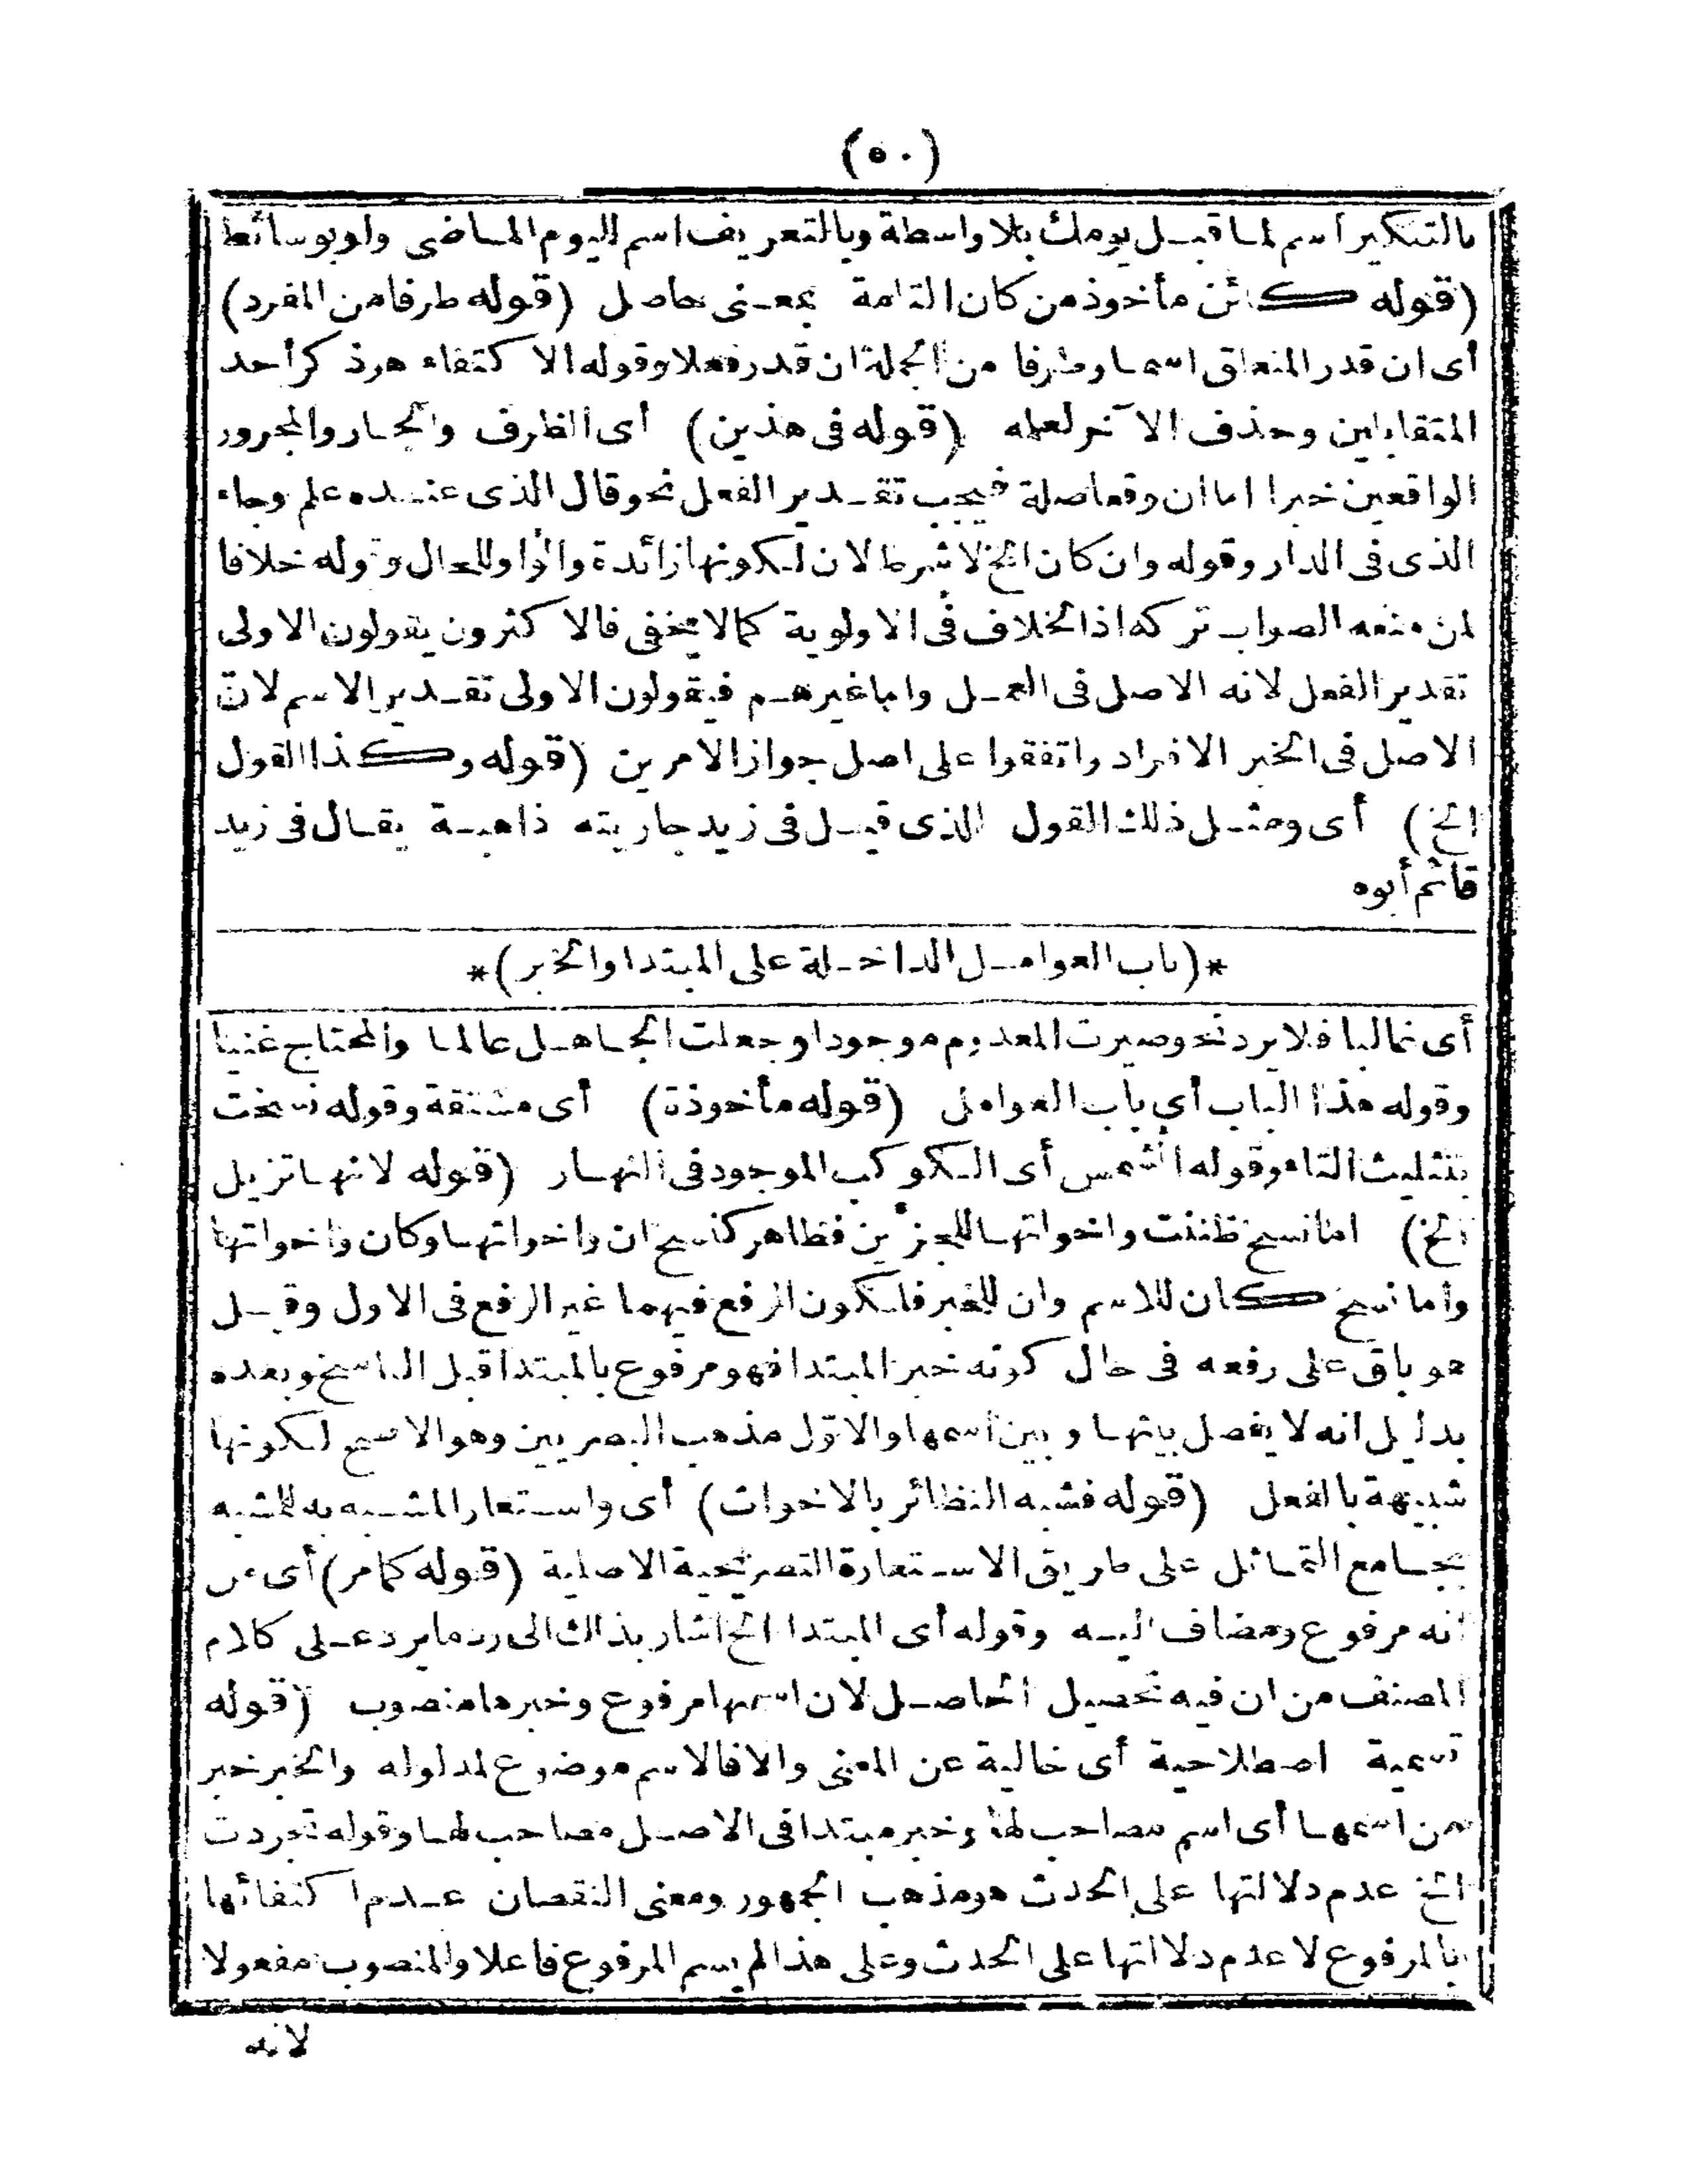 (٥٠)
بالتنكير اسم لما قبل يومك بلا واسطة وبالتعريف اسم لليوم الماضى ولو بوسائط
(قوله كائن مأخوذ من كان التامة بمعنى حاصل (قوله طرفا من المفرد)
أى ان قدر المتعلق اسما وطرفا من الجملة ان قدر فعلا وقوله الاكتفاء هو ذكر أحد
المتقابلين وحذف الآخر لعلمه (قوله فى هذين) أى الظرف والجار والمجرور
الواقعين خبرا اما ان وقعا صلة فيجب تقدير الفعل نحو قال الذى عنده علم وجاء
الذى فى الدار وقوله وان كان الخ لا شرط لان لكونها زائدة والواو للحال وقوله خلافا
لمن منعه الصواب تركه اذ الخلاف فى الاولوية كما لا يخفى فالاكثرون يقولون الاولى
تقدير الفعل لانه الاصل فى العمل واما غيرهم فيقولون الاولى تقدير الاسم لان
الاصل فى الخبر الافراد واتفقوا على اصل جواز الامرين (قوله وكذا القول
الخ) أى ومثل ذلك القول الذى قيل فى زيد جاريته ذاهبة يقال فى زيد
قائم أبوه
*(باب العوامل الداخلة على المبتدا والخبر)*
أى غالبا فلا يرد نحو صيرت المعدوم موجودا وجعلت الجاهل عالما والمحتاج غنيا
وقوله هذا الباب أى باب العوامل (قوله مأخوذة) أى مشتقة وقوله نسخت
بتثليث التاء وقوله الشمس أى الكوكب الموجود فى النهار (قوله لانها تزيل
الخ) اما نسخ ظننت واخواتها للجزئين فظاهر كنسخ ان واخواتها وكان واخواتها
وأما نسخ كان للاسم وان للخبر فلكون الرفع فيهما غير الرفع فى الاول وقيل
هو باق على رفعه فى حال كونه خبر المبتدا فهو مرفوع بالمبتدا قبل الناسخ وبعده
بدليل انه لا يفصل بينها وبين اسمها والاوّل مذهب البصريين وهو الاصح لكونها
شبيهة بالفعل (قوله فشبه النظائر بالاخوات) أى واستعار المشبه به للمشبه
بجامع التماثل على طريق الاستعارة التصريحية الاصلية (قوله كما مر) أى من
انه مرفوع ومضاف اليه وقوله أى المبتدا الخ اشار بذلك الى رد ما يرد على كلام
المصنف من ان فيه تحصيل الحاصل لان اسمها مرفوع وخبرها منصوب (قوله
تسمية اصطلاحية أى خالية عن المعنى والا فالاسم موضوع لمدلوله والخبر خبر
عن اسمها أى اسم مصاحب لها وخبر مبتدا فى الاصل مصاحب لها وقوله تجردت
الخ عدم دلالتها على الحدث هو مذهب الجمهور ومعنى النقصان عدم اكتفائها
بالمرفوع لا عدم دلالتها على الحدث وعلى هذا لم يسم المرفوع فاعلا والمنصوب مفعولا
لانه